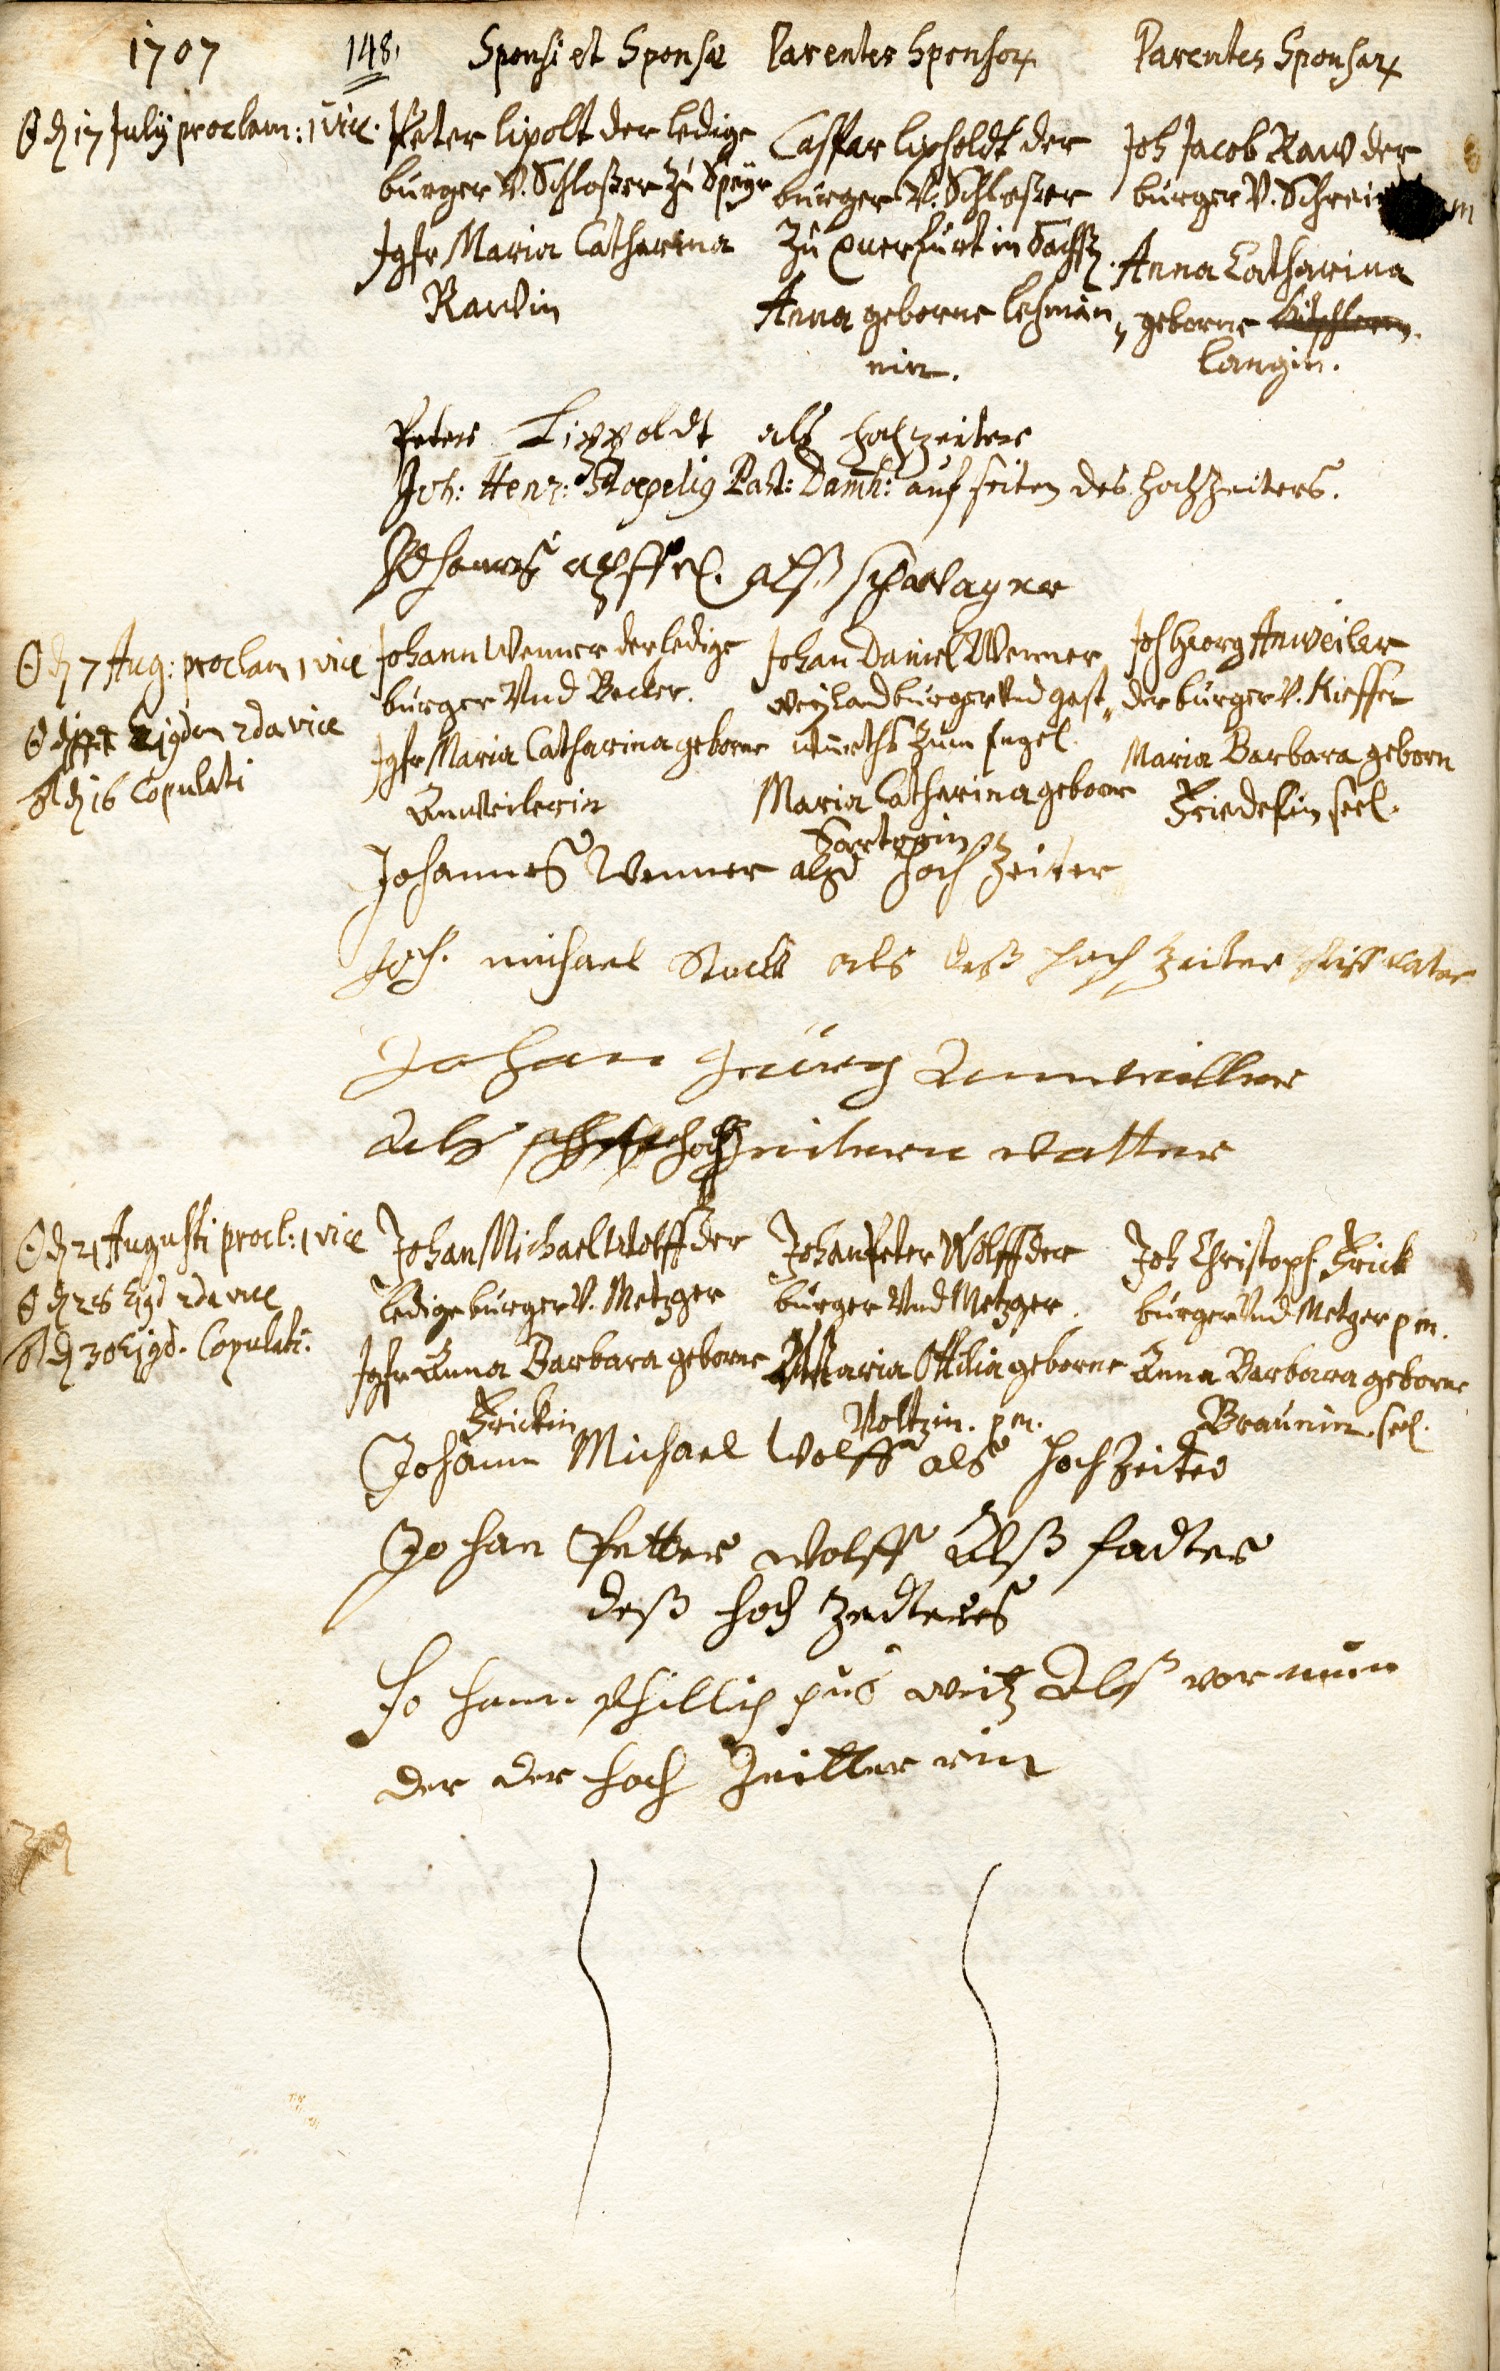 1707
148.
Sponsi et Sponsæ
Parentes Sponsor.
Parentes Sponsar.
☉ d 17 July proclam: 1 vice.
Peter lipolt der ledige
burger V. Schloßer zu Speyr
Jgfr Maria Catharina
Rawin
Caspar lipholdt der
burger V. Schloßer
zu Querfurt in Sachß.
Anna geborne lehmän„
nin.
Joh Jacob Raw der
burger V. Schrei
Anna Catharina
geborne
langin.
Peter Lippoldt als hochzeiter
Joh: Henr: Past: auf seiten des hochzeiters.
Johannes als schwager
☉ d 7 Aug: proclam 1 vice
☉ d ejgdem 2da vice
d 16 Copulati
Johann Wenner der ledige
burger Vnd Becker.
Jgfr Maria Catharina geborne
Anweilerin
Johan Daniel Wenner
weyland burger Vnd gast„
wurths zum Engel.
Maria Catharina geborne
Hartogin
Joh Georg Anweiler
der burger V. Kieffer
Maria Barbara geborn
Friedelin seel.
Johannes Wenner alß hoch Zeiter
Joh. michael Stuck als deß hoch zeiter stiff vater
Johan Geürg Annweiller
Als hochzeitern vatter
☉ d 21 Augusti procl: 1 vice
☉ d 28 Ejgd 2da vice
d 30 Ejgd. Copulati.
Johan Michael Wolff der
ledige burger V. Metzger
Jgfr Anna Barbara geborne
Frickin
Johan Peter Wolff der
burger Vnd Metzger.
Maria Ottilia geborne
Voltzin. p.m.
Joh Christoph Frick
burger Vnd Metzger p.m.
Anna Barbara geborne
Braunin seel.
Johann Michael Wolff als hoch Zeiter
Johan Petter Wolff Alß fadter
deß hoch zedteres
Johann Phillip pus weitz Alß vor mun
der der hoch Zeitter rin